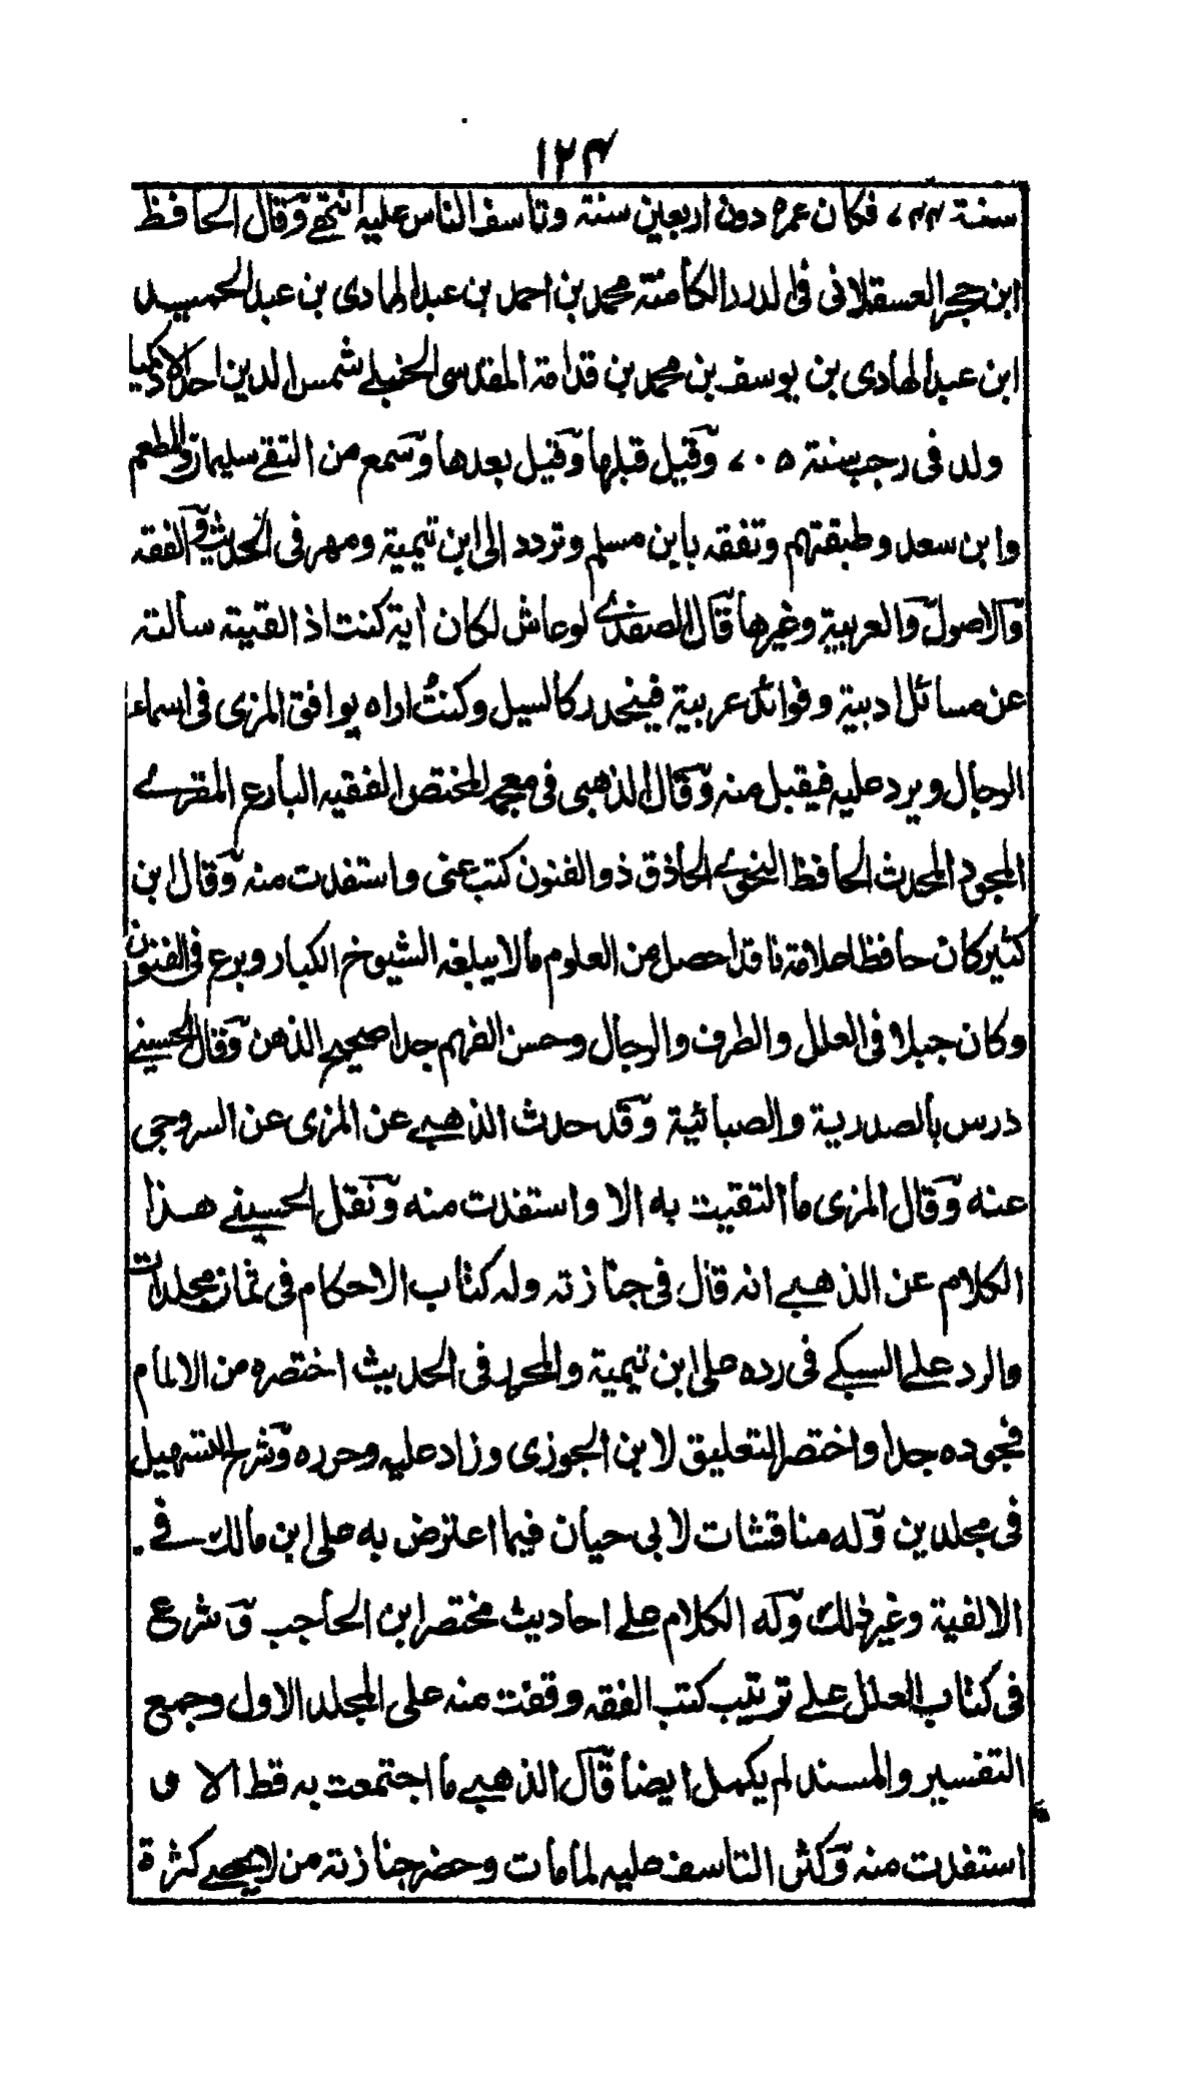 ١٢٤
سنة ٧٤٤ فكان عمره دون اربعين سنة وتأسف الناس عليه انتهى وقال الحافظ
ابن حجر العسقلانى فى الدرر الكامنة محمد بن احمد بن عبد الهادى بن عبد الحميد
ابن عبد الهادى بن يوسف بن محمد بن قدامة المقدسى الحنبلے شمس الدين احد الاذكيا
ولد فى رجب سنة ٧٠٥ وقيل قبلها وقيل بعدها وسمع من التقے سليمان والمطعم
وابن سعد وطبقتهم وتفقه بابن مسلم وتردد الى ابن تيمية ومهر فى الحديث والفقه
والاصول والعربية وغيرها قال الصفدے لوعاش لكان أية كنت اذ القيته سألته
عن مسائل ادبية وفوائد عربية فينحدر كالسيل وكنت اراه يوافق المزى فى اسماء
الرجال ويرد عليه فيقبل منه وقال الذهبى فى معجمه المختص الفقيه البارع المقرے
المجود المحدث الحافظ النحوے الحاذق ذو الفنون كتب عنى واستفدت منه وقال ابن
كثير كان حافظا علامة ناقدا حصل من العلوم مالا يبلغه الشيوخ الكبار وبرع فى الفنون
وكان جبلا فى العلل والطرف والرجال وحسن الفهم جدا صحيح الذهن وقال الحسينے
درس بالصدرية والصبائية وقد حدث الذهبے عن المزى عن السروجى
عنه وقال المزى ما التقيت به الا واستفدت منه ونقل الحسينے هذا
الكلام عن الذهبے انه قال فى جنازته وله كتاب الاحكام فى ثمان مجلدات
والرد علے السبكے فى رده على ابن تيمية والمحرر فى الحديث اختصره من الالمام
فجوده جدا واختصر التعليق لابن الجوزى وزاد عليه وحرره وشرح التسهيل
فى مجلدين وله مناقشات لابى حيان فيما اعترض به على ابن مالك فے
الالفية وغير ذلك وله الكلام علے احاديث مختصر ابن الحاجب وشرع
فى كتاب العلل علے ترتيب كتب الفقه وقفت منه على المجلد الاول وجمع
التفسير والمسند لم يكمل ايضا قال الذهبے ما اجتمعت به قط الا و
استفدت منه وكثر التاسف عليه لمامات وحضر جنازته من لا يحصے كثرة